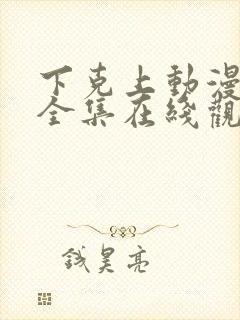 下克上動漫
全集在綫觀
钱昊亮